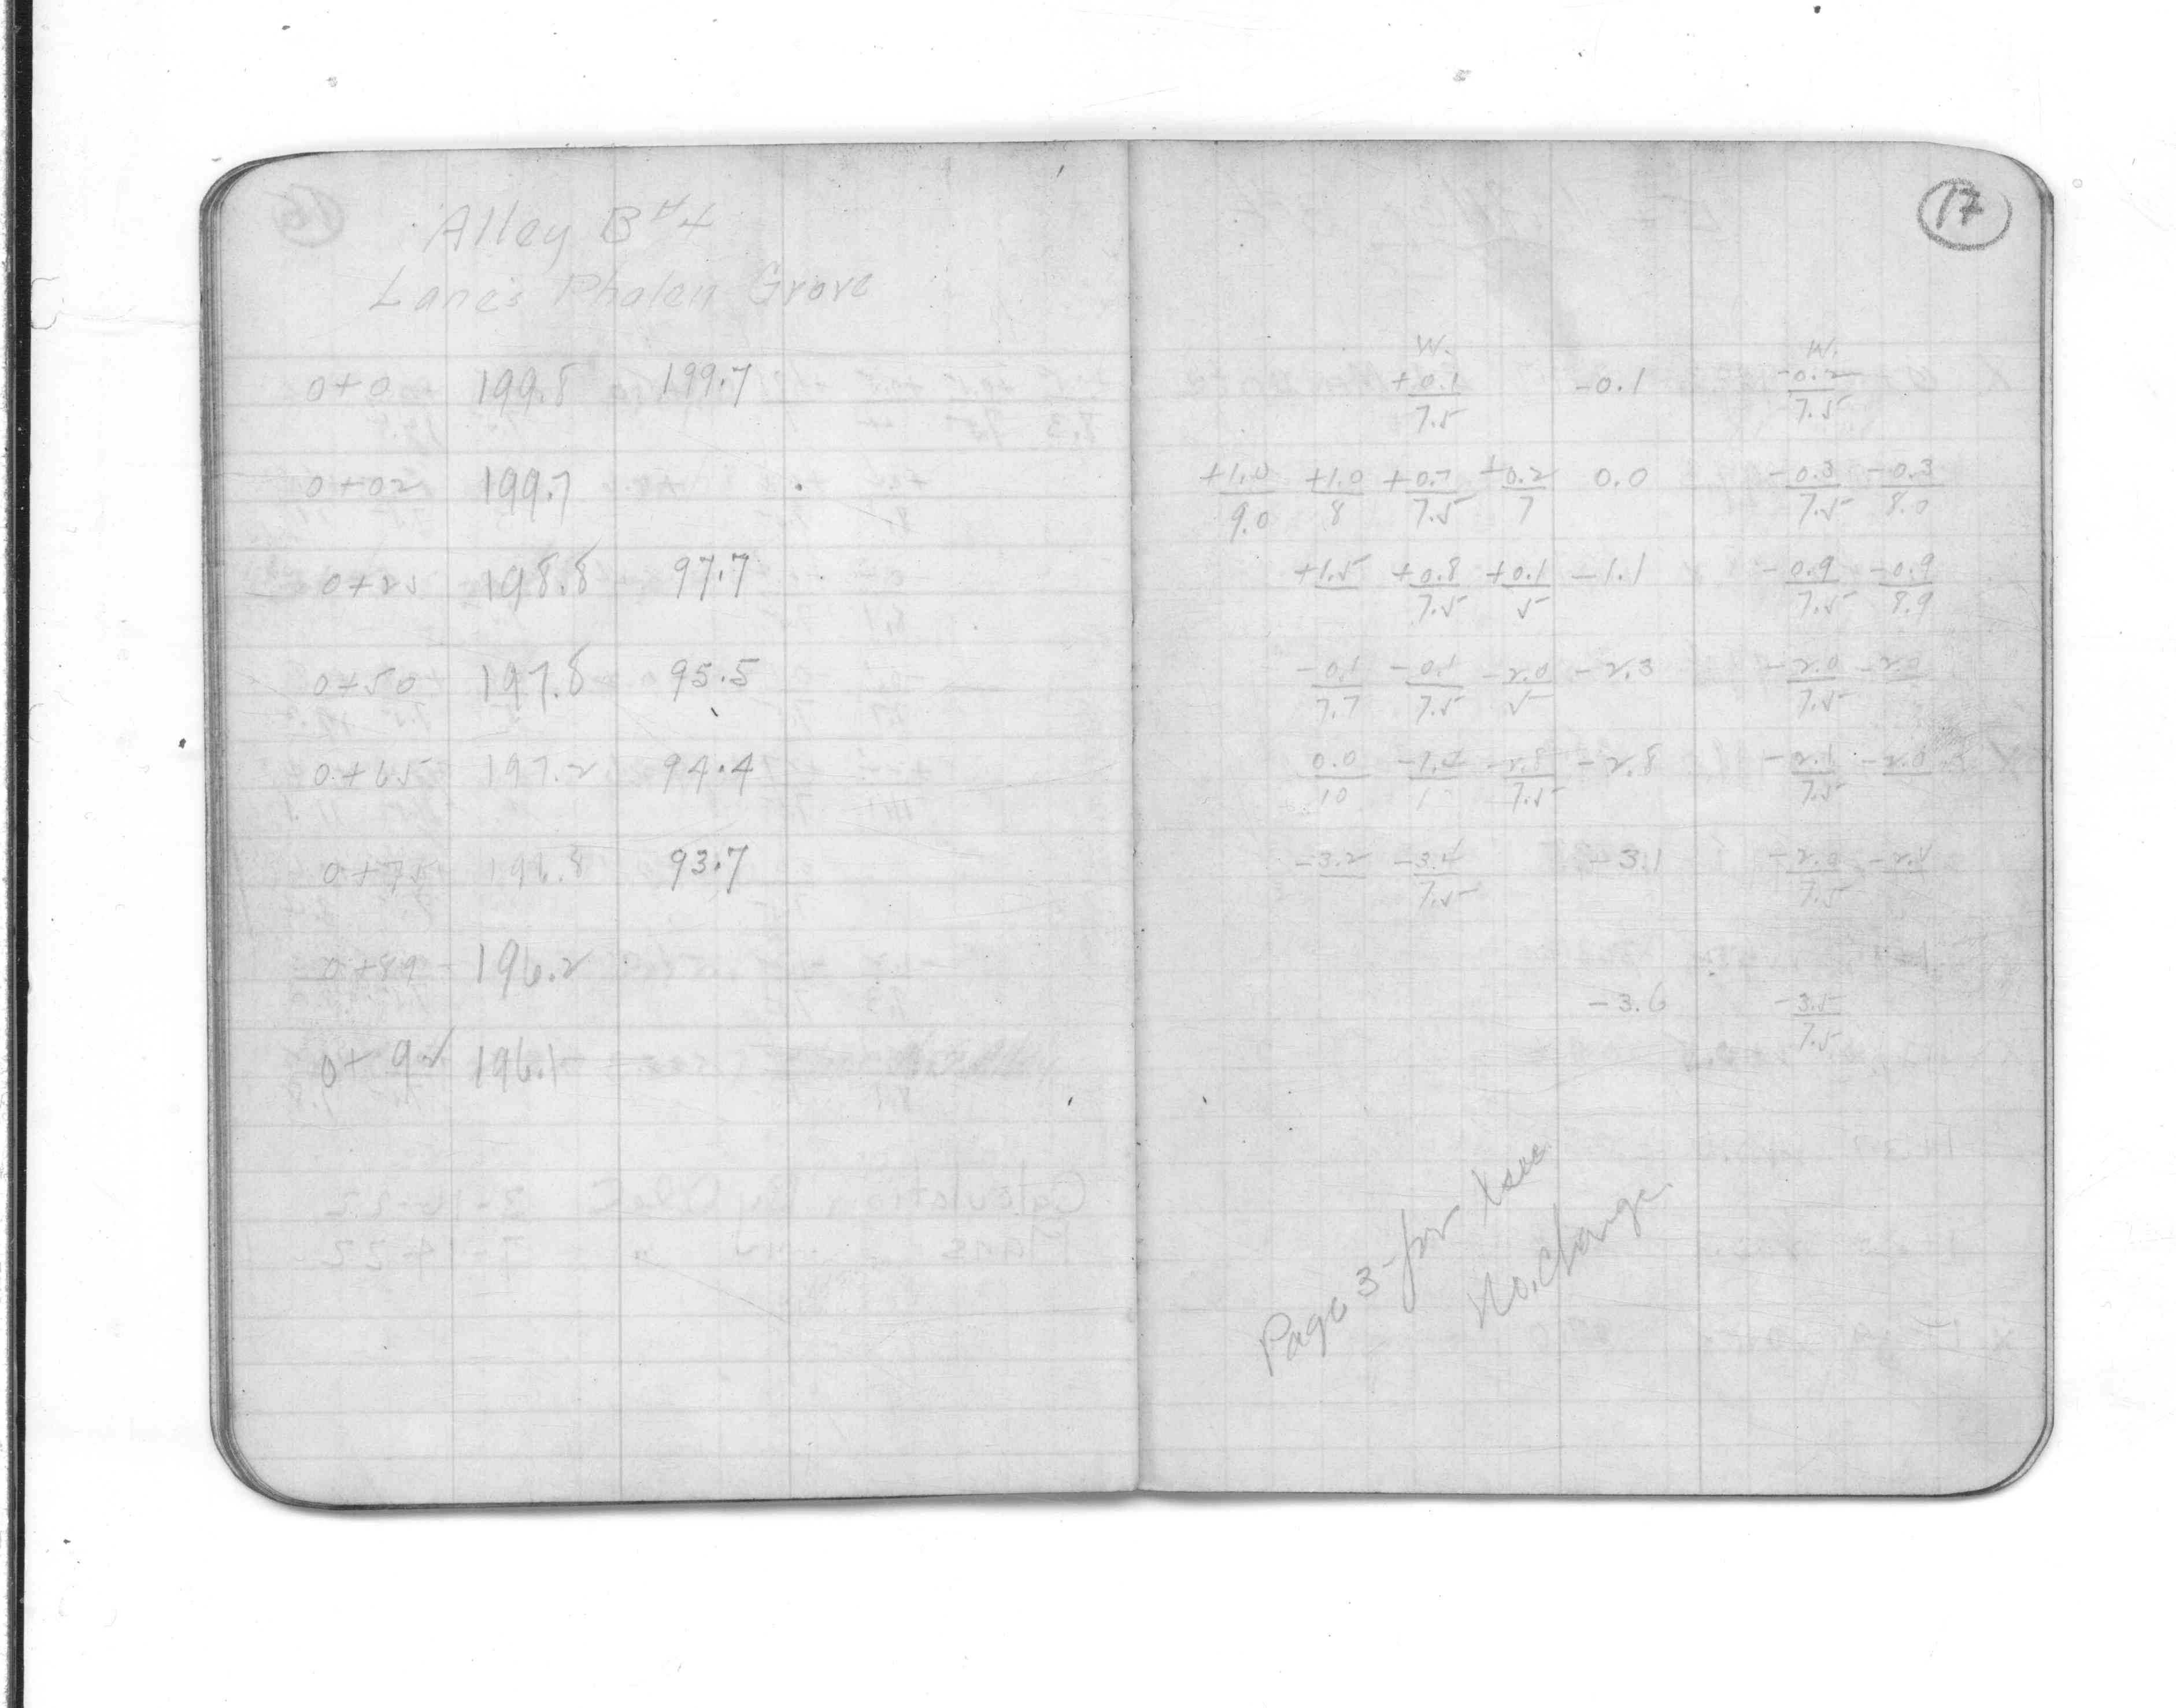 Alley B#4
Lane's Phalen Grove
0+0 199.8 199.7
0+02 199.7
0+25 198.8 97.7
0+50 197.8 95.5
0+65 197.2 94.4
0+75 196.8 93.7
0+89 196.2
0+92 196.1
17
W. W.
+0.1 -0.1 -0.2
7.5 7.5
+1.0 +1.0 +0.7 +0.2 0.0 -0.3 -0.3
9.0 8 7.5 7 7.5 8.0
+1.5 +0.8 +0.1 -1.1 -0.9 -0.9
7.5 5 7.5 8.9
-0.1 -0.1 -2.0 -2.3 -2.0 -2.0
7.7 7.5 5 7.5
0.0 -2.8 -2.8 -2.1 -2.0
10 7.5 7.5
-3.2 -3.4 -3.1 -2.0
7.5 7.5
-3.6 -3.5
7.5
Page 3 for Xsec
No. Change.